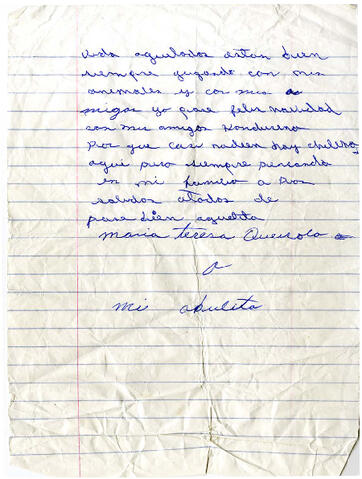 Uds aguelados estan bien
siempre gugando con mis
animales y con mis a
migos yo pase felis navidad
con mis amigos Hondureno
Por que casi nadien hay chileno
aqui paso siempre pensando
en mi familia a Dios
saludos atodos de
pase bien aguelita
Maria Teresa Queirolo
a
mi abulita